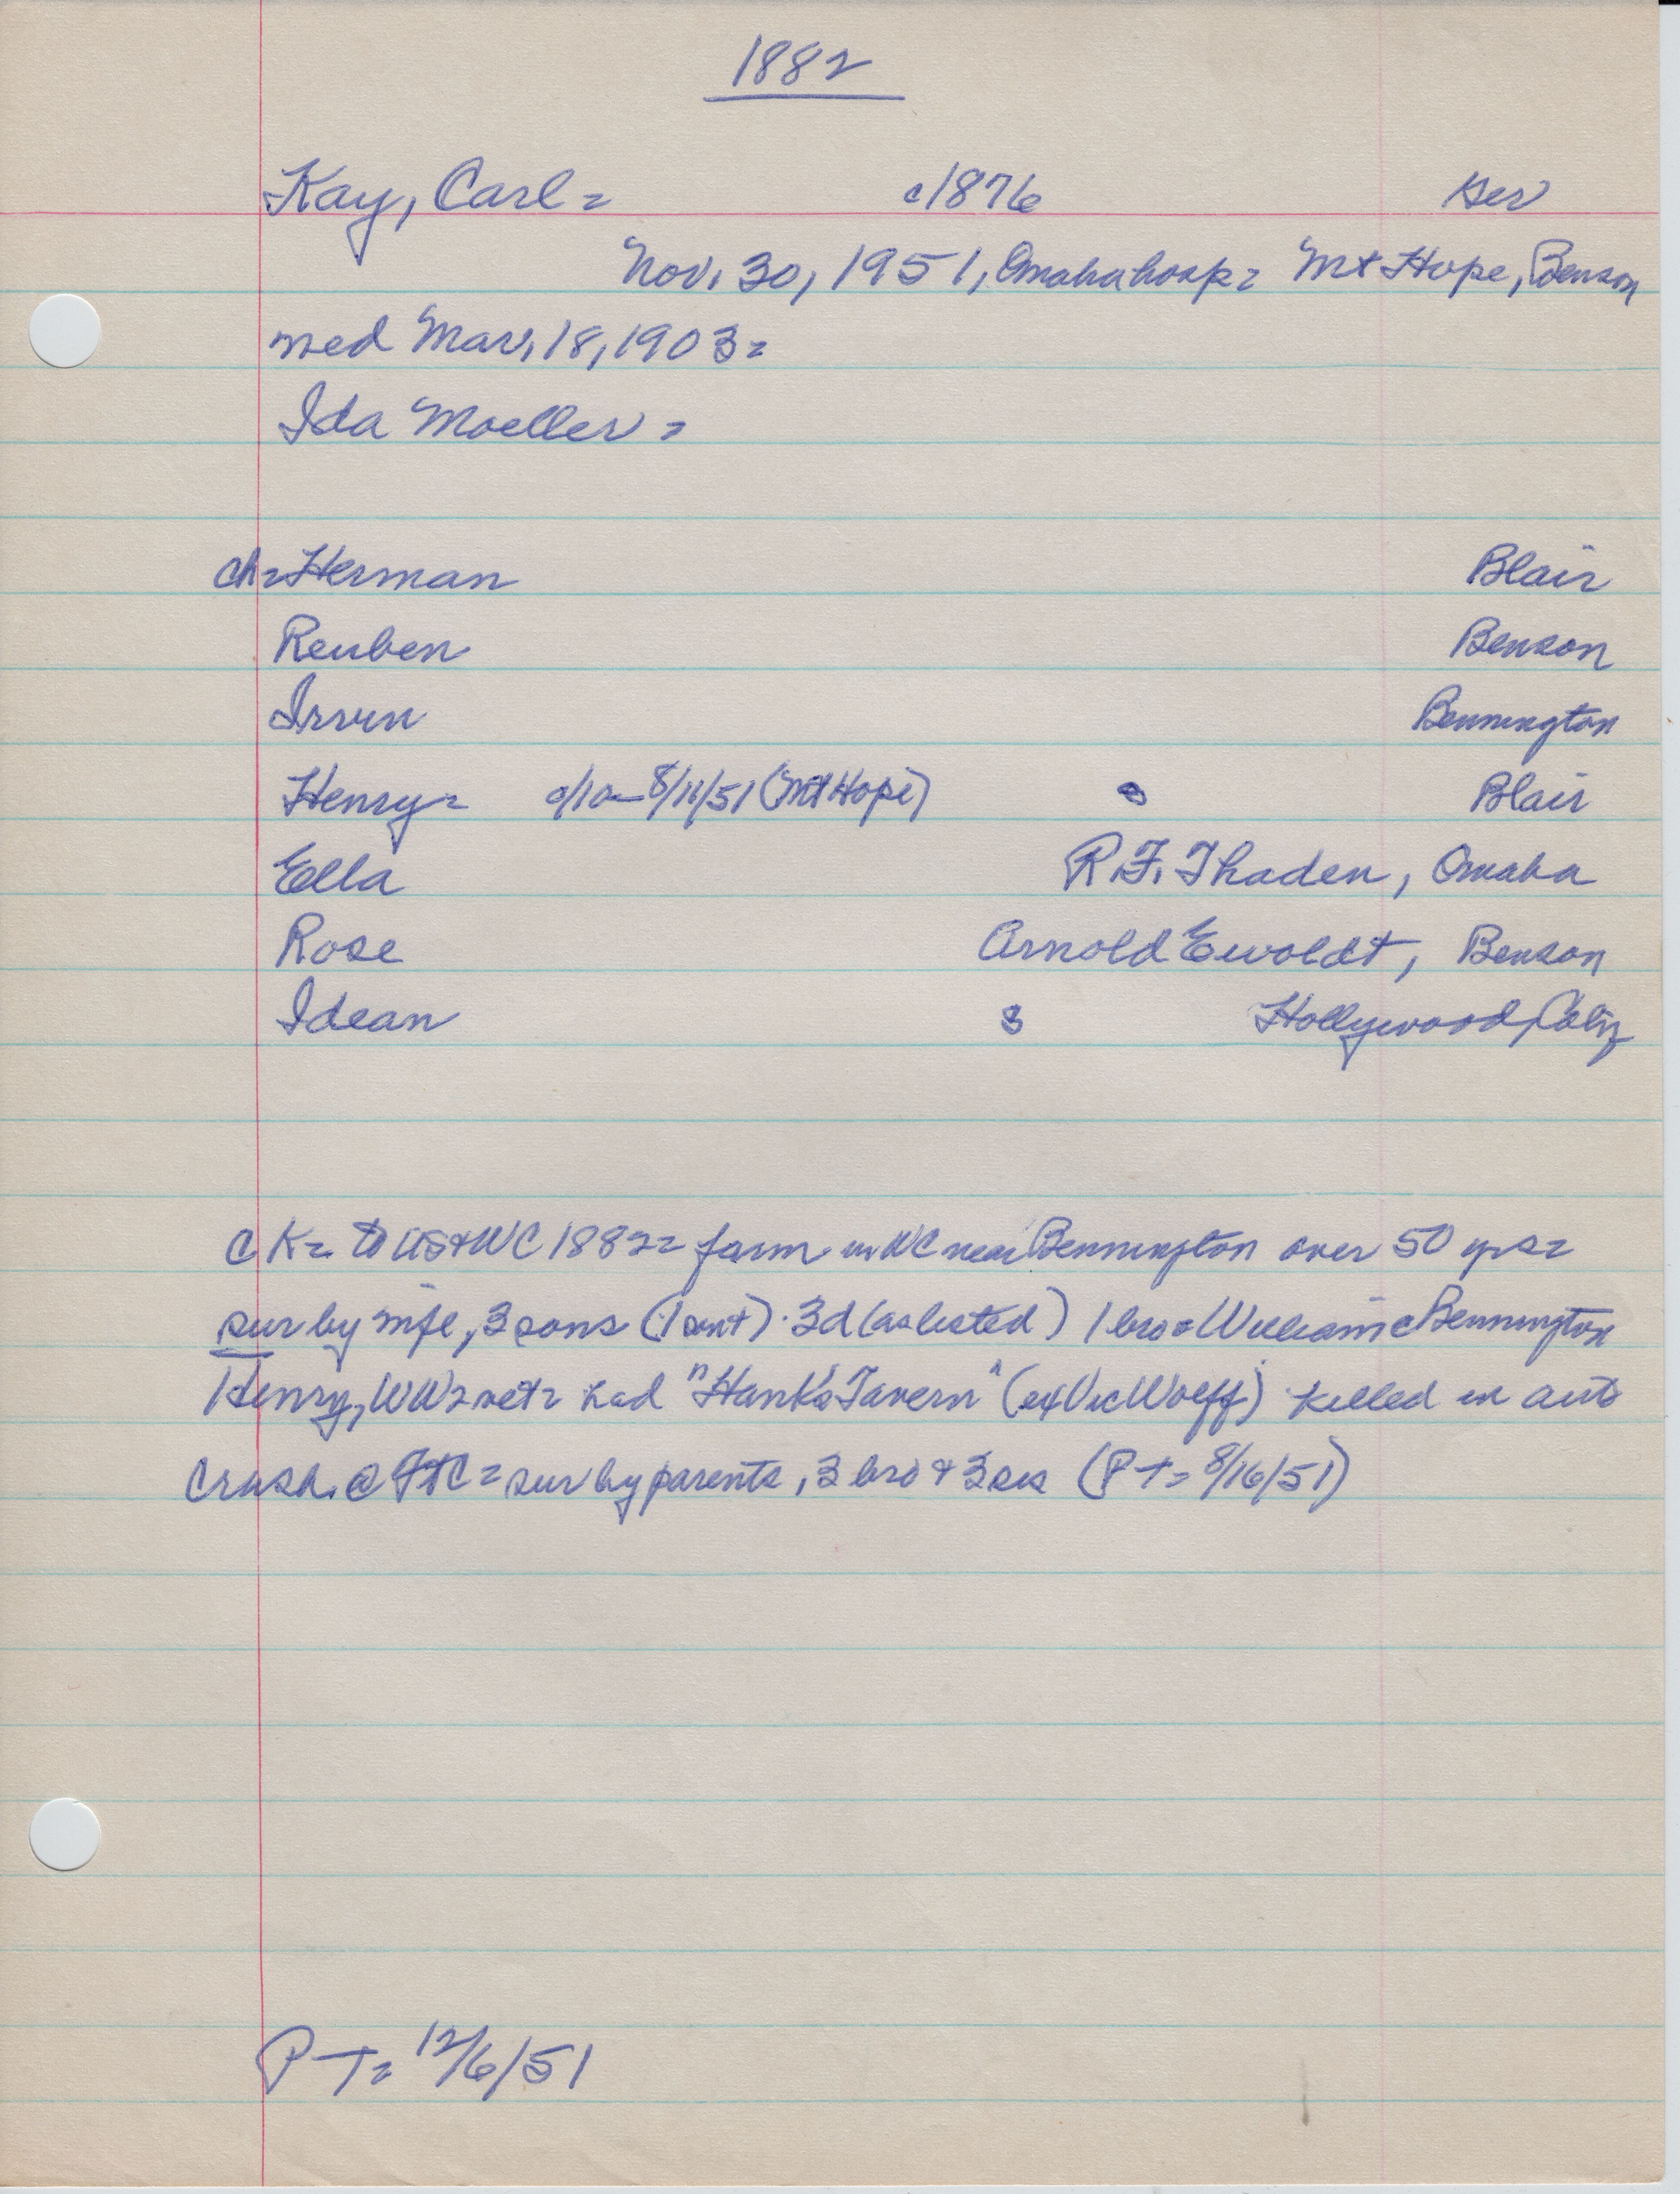 1882
Kay, Carl = c1876 Ger
Nov. 30, 1951, Omaha hosp = Mt Hope, Benson
med Mar. 18, 1903 =
Ida Moeller =
ch = Herman Blair
Reuben Benson
Irvin Bennington
Henry = c/10 - 8/11/51 (Mt Hope) s Blair
Ella R.F. Thaden, Omaha
Rose Arnold Ewoldt, Benson
Idean s Hollywood, Calif
CK = to US & WC 1882 = farm in WC near Bennington over 50 yrs =
sur by wife, 3 sons 3d (as listed) 1 bro = William Bennington
Henry, WW2 vet = had "Hank's Tavern" (ex Vic Wolff) killed in auto
crash @ FtC = sur by parents, 3 bro & 3 sis (PT = 8/16/51)
PT = 12/6/51